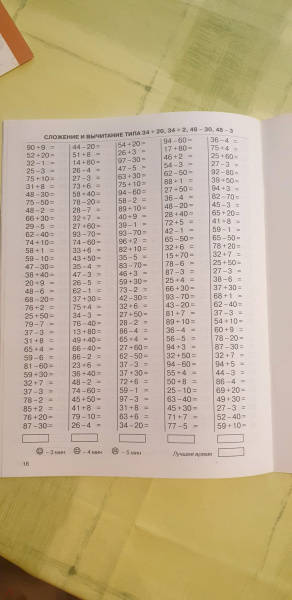 СЛОЖЕНИЕ И ВЫЧИТАНИЕ ТИПА 34 + 20, 34 + 2, 48 – 30, 48 – 3
90 + 9 =
52 + 20 =
32 – 1 =
25 – 3 =
75 + 10 =
31 + 8 =
75 – 50 =
48 – 2 =
66 + 30 =
29 – 5 =
62 – 40 =
74 + 10 =
58 + 1 =
59 – 10 =
47 – 30 =
38 + 40 =
20 + 9 =
48 – 6 =
68 – 20 =
76 + 2 =
25 + 50 =
79 – 7 =
37 – 3 =
31 + 8 =
65 + 4 =
59 – 6 =
81 – 60 =
59 + 30 =
32 + 7 =
37 – 3 =
78 – 2 =
85 + 2 =
76 + 20 =
87 – 30 =
44 – 20 =
51 + 8 =
14 + 60 =
26 – 4 =
27 – 3 =
73 + 6 =
58 + 40 =
78 – 20 =
28 + 7 =
27 + 60 =
93 – 70 =
74 – 60 =
33 + 6 =
43 + 50 =
35 – 4 =
47 – 3 =
26 – 5 =
62 – 1 =
37 + 30 =
75 + 4 =
34 – 3 =
76 – 40 =
13 + 80 =
49 + 40 =
66 – 40 =
86 – 2 =
23 + 6 =
36 + 40 =
48 – 2 =
74 – 60 =
45 + 50 =
41 + 8 =
79 – 10 =
26 – 4 =
54 + 20 =
26 + 3 =
97 – 30 =
47 – 5 =
63 + 30 =
75 + 10 =
94 – 60 =
58 – 2 =
89 + 10 =
40 + 9 =
39 – 1 =
93 – 70 =
96 + 2 =
82 + 10 =
35 – 5 =
83 – 70 =
46 + 3 =
59 + 30 =
73 – 2 =
42 – 30 =
32 + 6 =
27 + 50 =
28 – 2 =
86 – 4 =
65 + 4 =
27 + 60 =
62 – 50 =
36 – 3 =
37 + 30 =
72 + 6 =
59 – 1 =
97 – 3 =
31 + 8 =
63 + 6 =
34 – 20 =
94 – 60 =
17 + 80 =
46 + 2 =
54 – 3 =
62 – 50 =
88 + 1 =
27 + 50 =
36 – 4 =
48 – 20 =
28 + 40 =
72 + 5 =
42 – 1 =
65 – 50 =
32 + 6 =
15 + 70 =
78 – 6 =
87 – 3 =
25 + 4 =
66 + 30 =
93 – 70 =
43 – 20 =
81 + 7 =
89 + 10 =
54 – 4 =
56 – 5 =
94 + 3 =
32 + 50 =
94 – 60 =
55 + 4 =
50 + 8 =
25 – 4 =
63 – 40 =
45 + 30 =
71 + 7 =
77 – 5 =
36 – 4 =
75 + 4 =
25 + 60 =
27 – 3 =
92 – 80 =
39 + 50 =
94 + 3 =
82 – 70 =
45 – 3 =
65 + 20 =
41 + 8 =
59 – 1 =
65 – 50 =
78 + 20 =
32 + 7 =
25 + 50 =
27 – 3 =
38 – 6 =
37 + 30 =
68 + 1 =
62 – 40 =
37 – 3 =
36 + 10 =
60 + 9 =
78 – 20 =
87 – 30 =
32 + 7 =
94 + 5 =
44 – 3 =
86 – 4 =
69 + 20 =
49 + 30 =
27 – 3 =
52 – 40 =
59 + 10 =
– 3 мин
– 4 мин
– 5 мин
Лучшее время
16